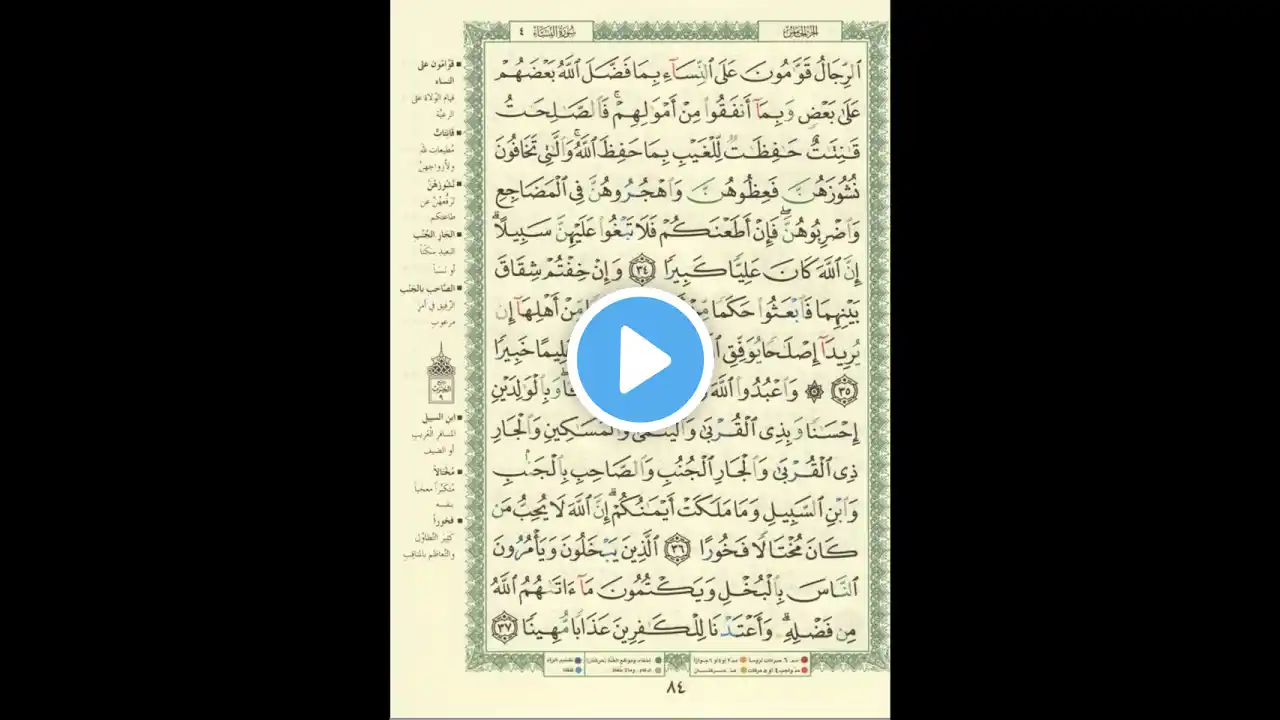 سُورَةُ النِّسَاء ٤
الرِّجَالُ قَوَّٰمُونَ عَلَى النِّسَآءِ بِمَا فَضَّلَ اللَّهُ بَعْضَهُمْ
عَلَىٰ بَعْضٍ وَبِمَآ أَنفَقُوا مِنْ أَمْوَٰلِهِمْ ۚ فَالصَّٰلِحَٰتُ
قَٰنِتَٰتٌ حَٰفِظَٰتٌ لِّلْغَيْبِ بِمَا حَفِظَ اللَّهُ ۚ وَالَّٰتِى تَخَافُونَ
نُشُوزَهُنَّ فَعِظُوهُنَّ وَاهْجُرُوهُنَّ فِى الْمَضَاجِعِ
وَاضْرِبُوهُنَّ ۖ فَإِنْ أَطَعْنَكُمْ فَلَا تَبْغُوا عَلَيْهِنَّ سَبِيلًا ۗ
إِنَّ اللَّهَ كَانَ عَلِيًّا كَبِيرًا ٣٤ وَإِنْ خِفْتُمْ شِقَاقَ
بَيْنِهِمَا فَابْعَثُوا حَكَمًا مِّنْ مِّنْ أَهْلِهَآ إِن
يُرِيدَآ إِصْلَٰحًا يُوَفِّقِ عَلِيمًا خَبِيرًا
٣٥ ۞ وَاعْبُدُوا اللَّهَ وَبِالْوَٰلِدَيْنِ
إِحْسَٰنًا وَبِذِى الْقُرْبَىٰ وَالْيَتَٰمَىٰ وَالْمَسَٰكِينِ وَالْجَارِ
ذِى الْقُرْبَىٰ وَالْجَارِ الْجُنُبِ وَالصَّاحِبِ بِالْجَنۢبِ
وَابْنِ السَّبِيلِ وَمَا مَلَكَتْ أَيْمَٰنُكُمْ ۗ إِنَّ اللَّهَ لَا يُحِبُّ مَن
كَانَ مُخْتَالًا فَخُورًا ٣٦ الَّذِينَ يَبْخَلُونَ وَيَأْمُرُونَ
النَّاسَ بِالْبُخْلِ وَيَكْتُمُونَ مَآ ءَاتَىٰهُمُ اللَّهُ
مِن فَضْلِهِ ۗ وَأَعْتَدْنَا لِلْكَٰفِرِينَ عَذَابًا مُّهِينًا ٣٧
قَوَّامُون على
النساء
قيام الوُلاة على
الرعيّة
قانتاتٌ
مُطيعات لله
ولأزواجهنّ
نُشُوزَهُنّ
تَرَفُّعَهُنّ عن
طاعتكم
الجَارِ الجُنُب
البعيد سكناً
أو نسباً
الصّاحب بالجَنب
الرّفيق في أمر
مرغوب
ابن السبيل
المسافر الغريب
أو الضيف
مُختالاً
مُتكبّراً معجباً
بنفسه
فخوراً
كثير التطاوُل
والتّعاظم بالمناقب
٨٤